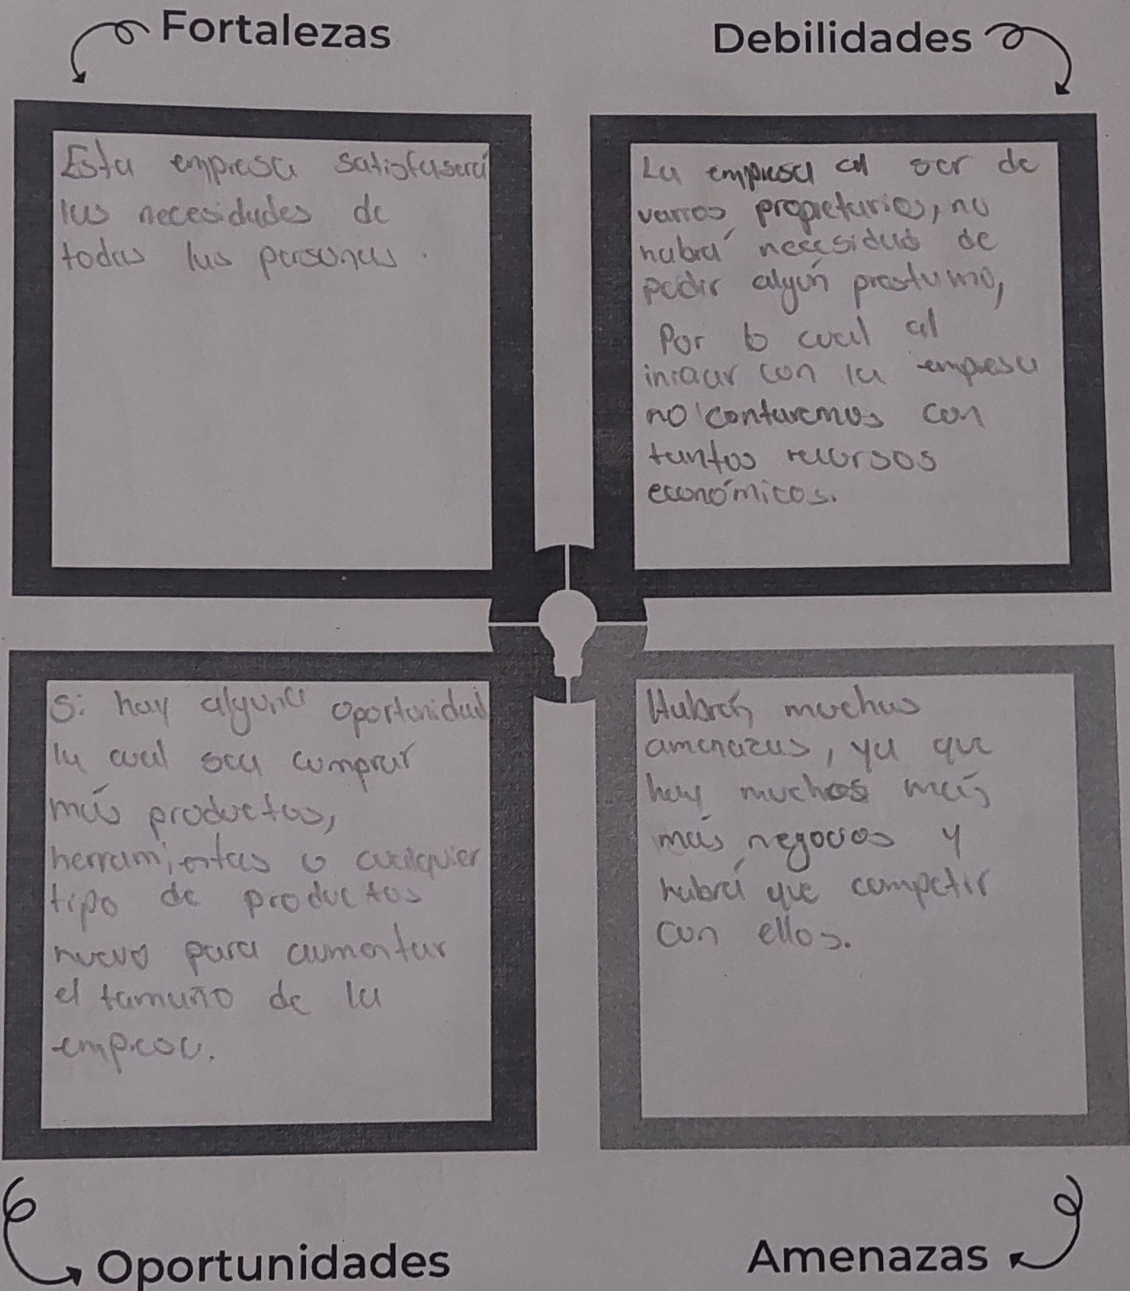 Fortalezas
Esta empresa satisfasera
las necesidades de
todas las personas.
Debilidades
La empresa al ser de
varios propietarios, no
habrá necesidad de
pedir algún prestamo,
Por lo cual al
iniciar con la empresa
no contaremos con
tantos recursos
económicos.
Si hay alguna oportunidad
la cual sea comprar
más productos,
herramientas o cualquier
tipo de productos
nuevo para aumentar
el tamaño de la
empresa.
Oportunidades
Habrán muchas
amenazas, ya que
hay muchos más
más negocios y
habrá que competir
con ellos.
Amenazas